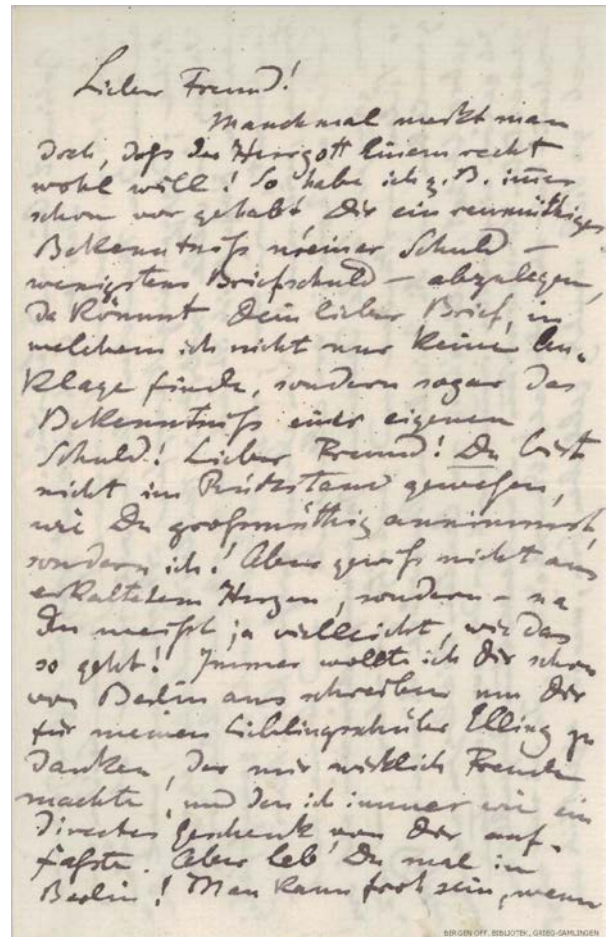 Lieber Freund!
Manchmal merkt man
doch, daſs der Herrgott Einem recht
wohl will! So habe ich z. B. im̅er
schon vor gehabt Dir ein reumüthiges
Bekenntniſs meiner Schuld –
wenigstens Briefschuld – abzulegen,
da kömmt Dein lieber Brief, in
welchem ich nicht nur keine An-
klage finde, sondern sogar das
Bekenntniſs einer eigenen
Schuld! Lieber Freund! Du bist
nicht im Rückstand geweſen,
wie Du groſsmüthig annimmst,
sondern ich! Aber gewiſs nicht aus
erkaltetem Herzen, sondern – na
Du weiſst ja vielleicht, wie das
so geht! Immer wollte ich Dir schon
von Berlin aus schreiben um Dir
für meinen Lieblingsschüler Elling zu
danken, der mir wirklich Freude
machte, und den ich immer wie ein
directes Geschenk von Dir auf-
faſste. Aber leb' Du mal in
Berlin! Man kann froh sein, wenn
BERGEN OFF. BIBLIOTEK, GRIEG-SAMLINGEN